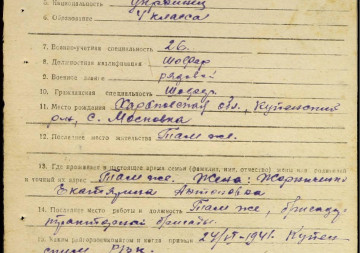 5. Национальность украинец
6. Образование 4 класса
7. Военно-учетная специальность 26.
8. Должностная квалификация шофер
9. Военное звание рядовой
10. Гражданская специальность Шофер.
11. Место рождения Харьковская обл., Купянский
р-н, с. Московка
12. Последнее место жительства Там же.
13. Где проживает в настоящее время семья (фамилия, имя, отчество) жены или родителей
и точный их адрес Там же. Жена:
Екатерина Антоновна
14. Последнее место работы и должность Там же, бригадир
тракторной бригады.
15. Каким райгорвоенкоматом и когда призван 24/VI-1941 Купян-
ским РВК.